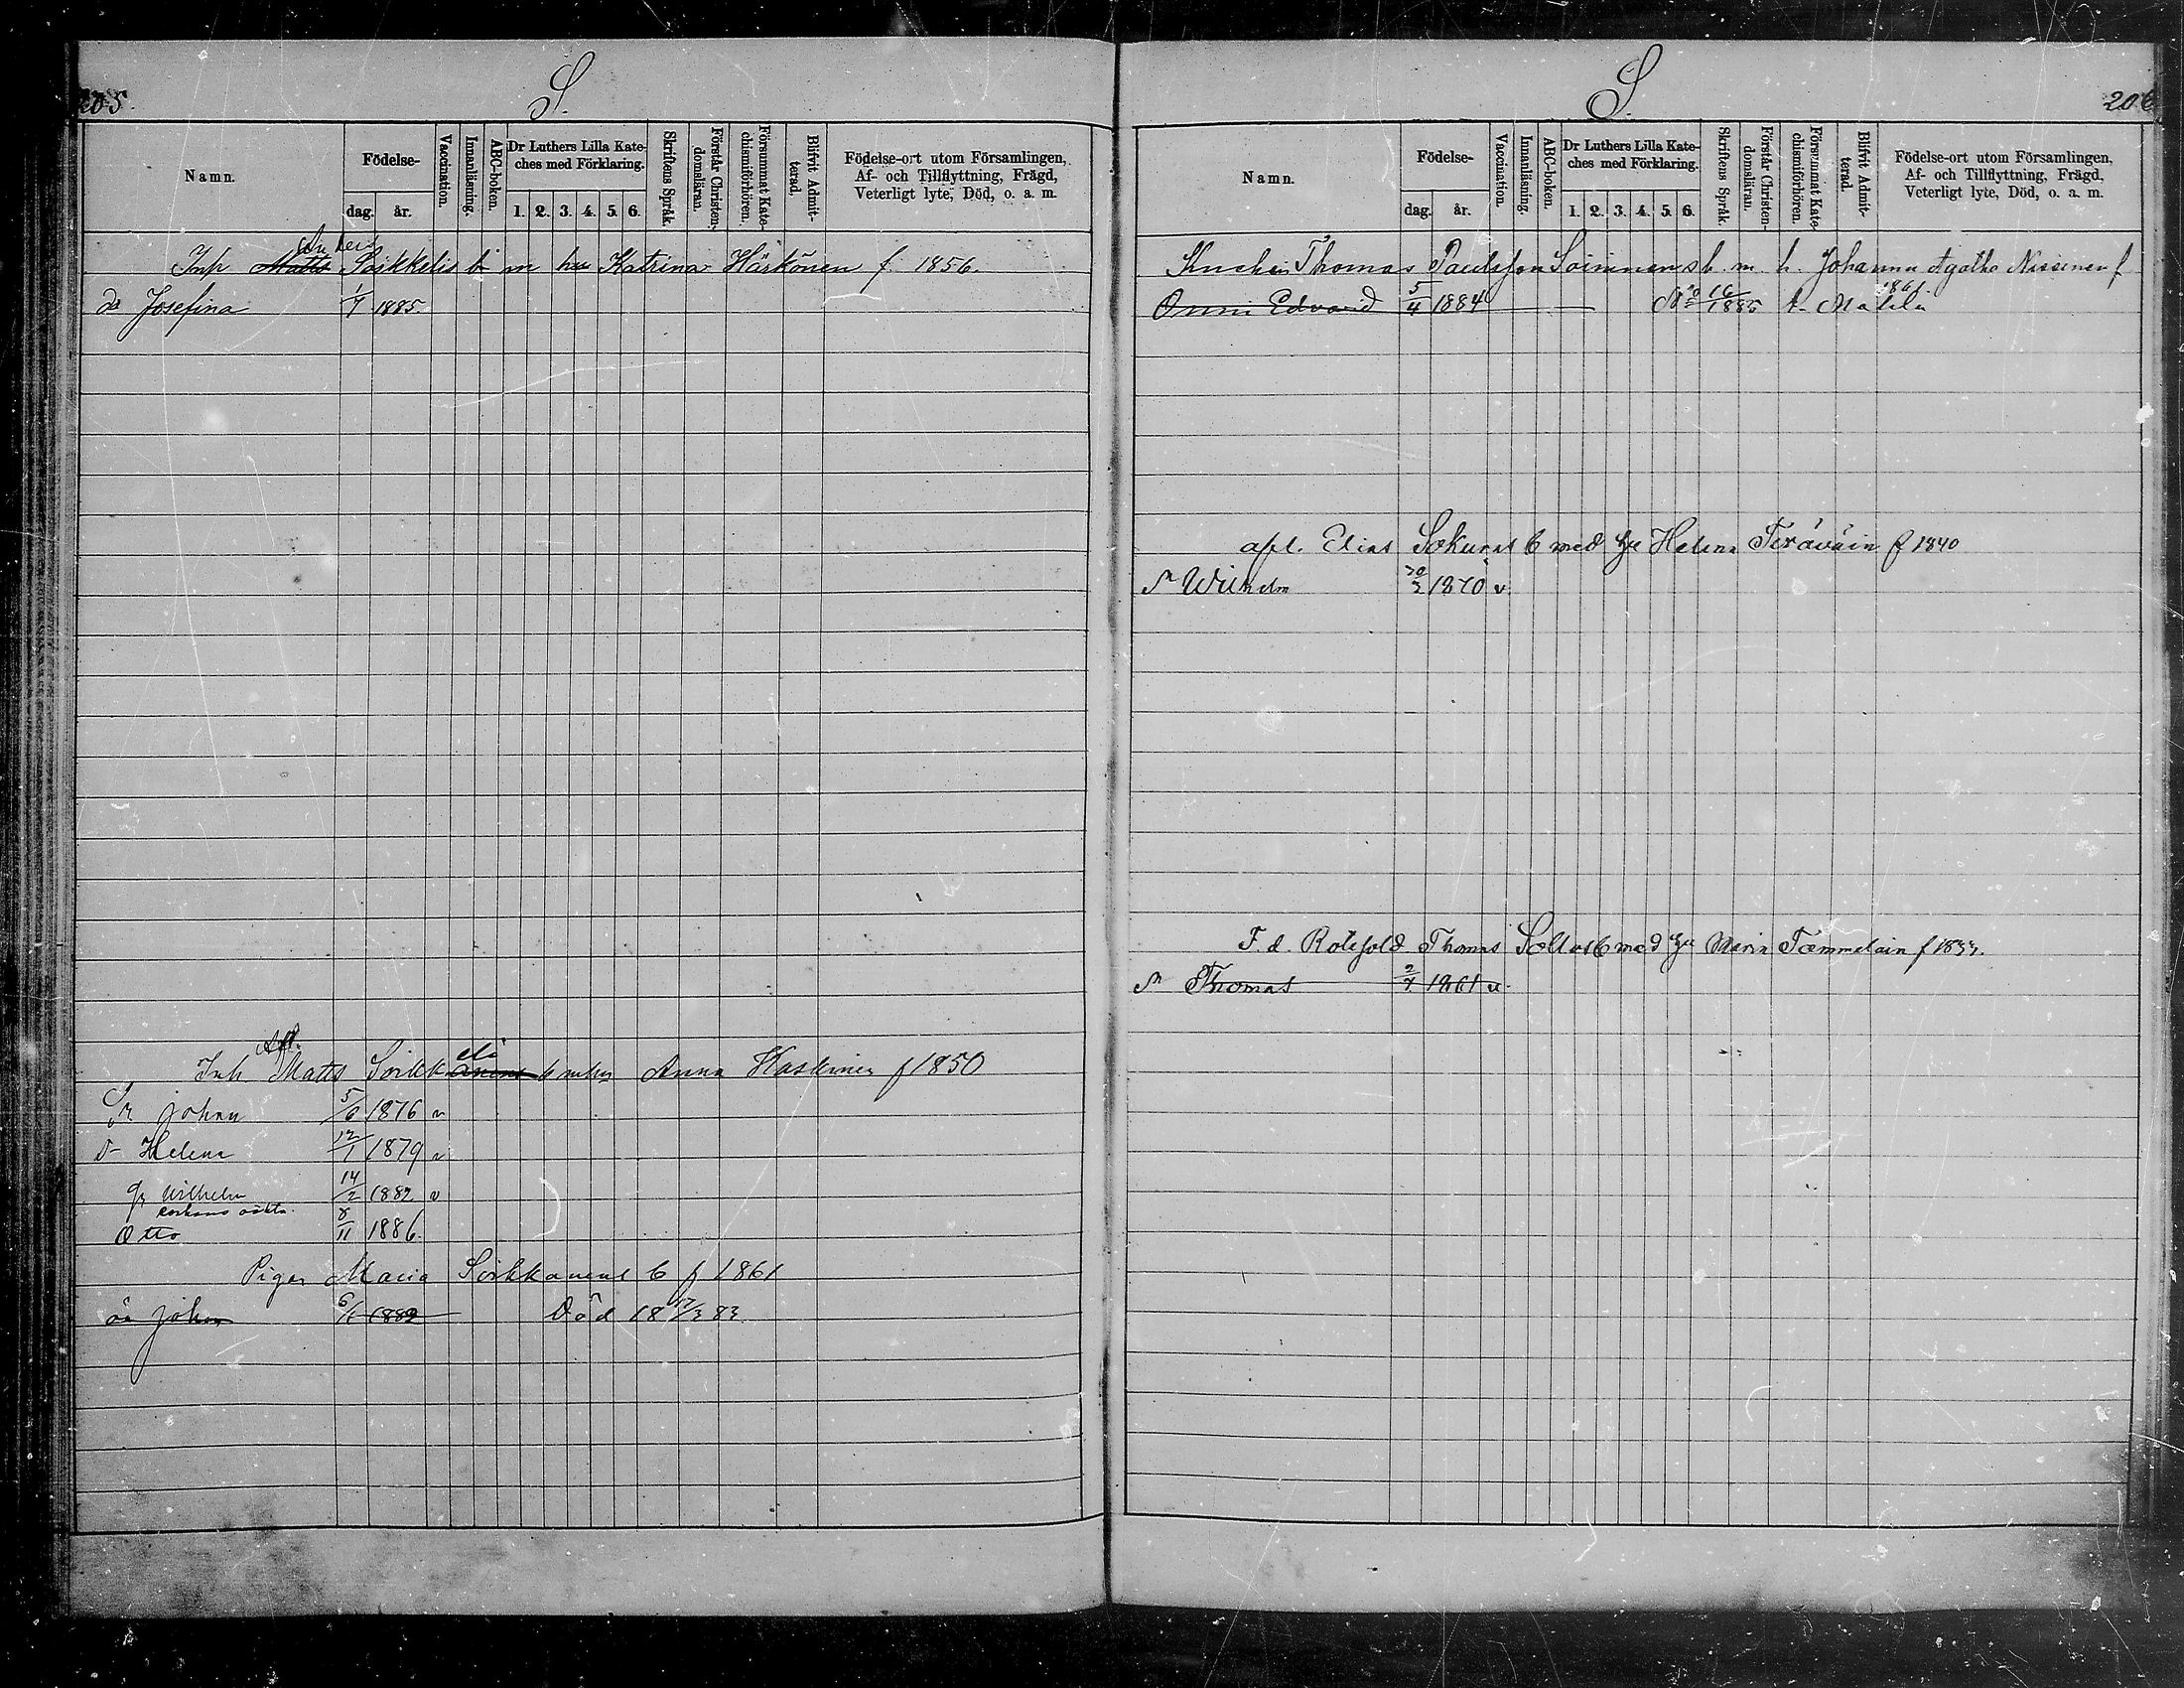 205.
S.
Namn.
Födelse-
dag.
år.
Vaccination.
Innanläsning.
ABC-boken.
Dr Luthers Lilla Kate-
ches med Förklaring.
1. 2. 3. 4. 5. 6.
Skriftens Språk.
Förstår Christen-
domsläran.
Försummat Kate-
chismiförhören.
Blifvit Admit-
terad.
Födelse-ort utom Församlingen,
Af- och Tillflyttning, Frägd,
Veterligt lyte, Död, o. a. m.
Anders
Inh Matts Soikkelis b m hu Katrina Härkönen f. 1856.
dr Josefina 1/7 1885.
Afl. eli
Inh Matts Soikkanens b m hu Anna Haskinen f 1850
Sn Johan 5/6 1876 v
dr Helena 12/1 1879 v
Sn Wilhelm 14/2 1882 v
Otto 8/11 1886.
Pigan Maria Soikkanens b f 1861
oä Johan 6/1 1882 Död 18 17/3 83.
S.
206
Namn.
Födelse-
dag.
år.
Vaccination.
Innanläsning.
ABC-boken.
Dr Luthers Lilla Kate-
ches med Förklaring.
1. 2. 3. 4. 5. 6.
Skriftens Språk.
Förstår Christen-
domsläran.
Försummat Kate-
chismiförhören.
Blifvit Admit-
terad.
Födelse-ort utom Församlingen,
Af- och Tillflyttning, Frägd,
Veterligt lyte, Död, o. a. m.
Thomas Paulsson Soininens b. m. h. Johanna Agatha Nissinen f
1861.
Onni Edvard 5/4 1884 No 16/1885 t.
afl. Elias Sokuras b med hu Helena Teräväin f 1840
Sn Wilhelm 1870 v
F. d. Rotesold Thomas b med hu Maria Tæmmeläin f 1833.
Sn Thomas 2/7 1861 v.